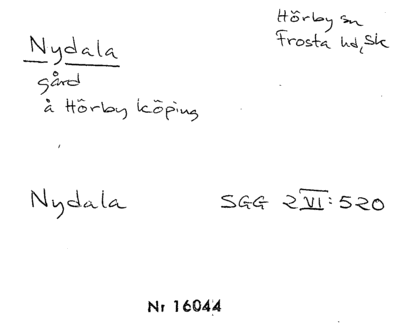 Hörby sn
Frosta hd, Sk
Nydala
gård
å Hörby köping
Nydala SGG 2 VI: 520
Nr 16044